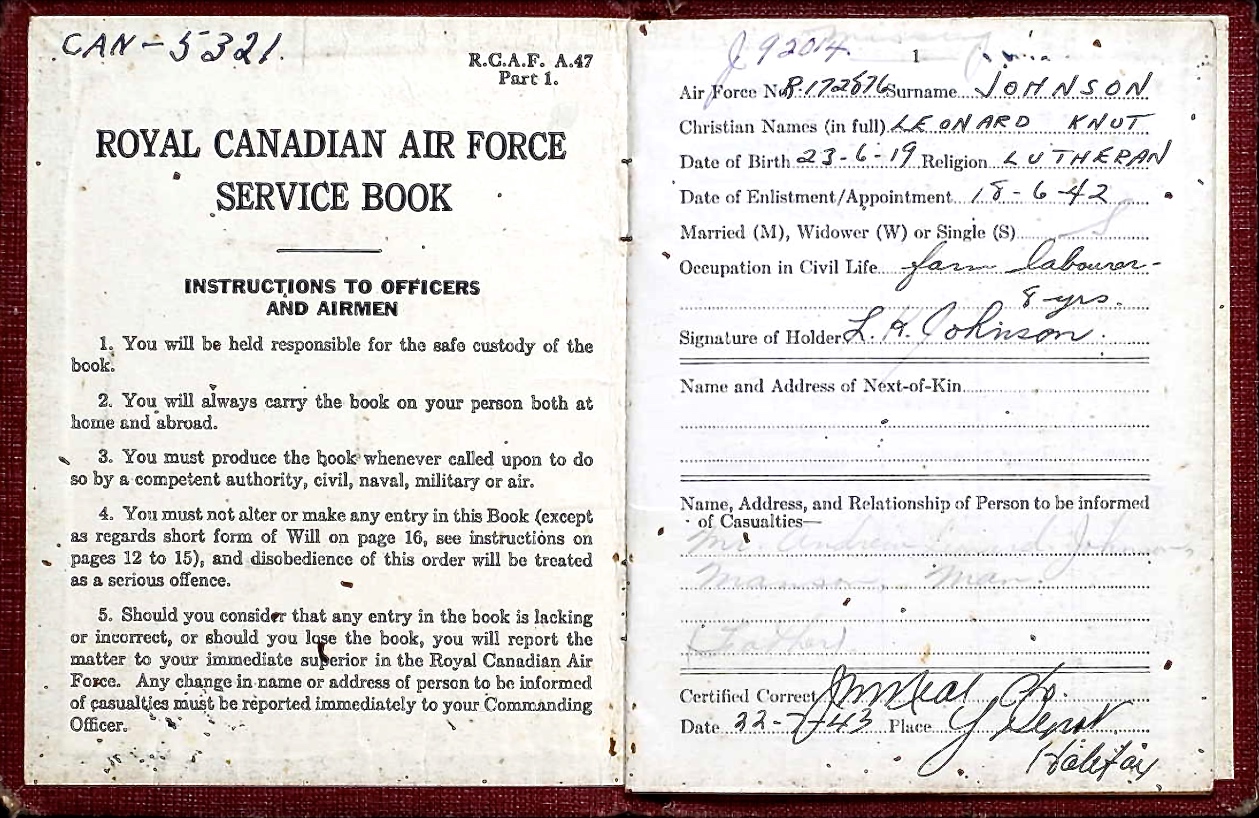 CAN-5321.
R.C.A.F. A.47
Part 1.
ROYAL CANADIAN AIR FORCE
SERVICE BOOK
INSTRUCTIONS TO OFFICERS
AND AIRMEN
1. You will be held responsible for the safe custody of the
book.
2. You will always carry the book on your person both at
home and abroad.
3. You must produce the book whenever called upon to do
so by a competent authority, civil, naval, military or air.
4. You must not alter or make any entry in this Book (except
as regards short form of Will on page 16, see instructions on
pages 12 to 15), and disobedience of this order will be treated
as a serious offence.
5. Should you consider that any entry in the book is lacking
or incorrect, or should you lose the book, you will report the
matter to your immediate superior in the Royal Canadian Air
Force. Any change in name or address of person to be informed
of casualties must be reported immediately to your Commanding
Officer.
J 92014. 1
Air Force No R.172876 Surname JOHNSON
Christian Names (in full) LEONARD KNUT
Date of Birth 23-6-19 Religion LUTHERAN
Date of Enlistment/Appointment 18-6-42
Married (M), Widower (W) or Single (S) S
Occupation in Civil Life farm labourer-
8 yrs.
Signature of Holder L. K. Johnson.
Name and Address of Next-of-Kin
Name, Address, and Relationship of Person to be informed
of Casualties—
Mr. Andrew Johnson,
Manson, Man.
(Father)
Certified Correct
Date 22-7-43 Place Y Depot
Halifax